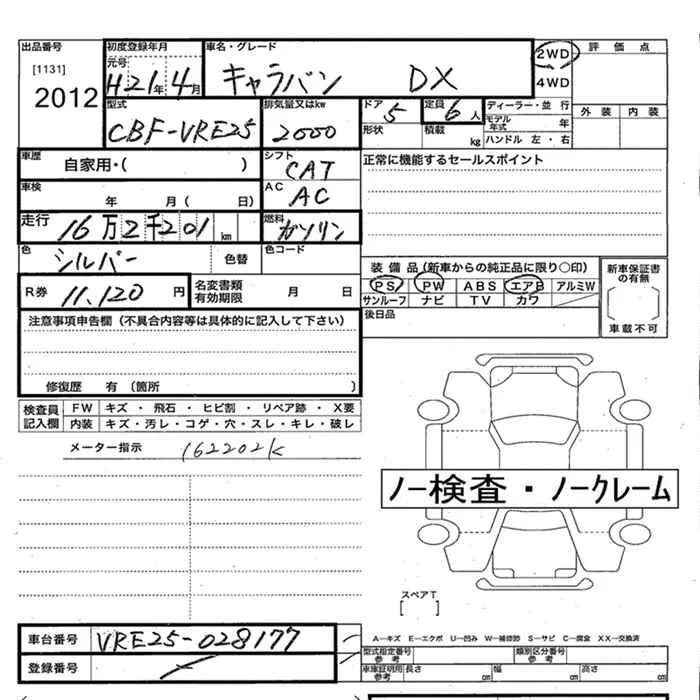 出品番号 初度登録年月 車名・グレード 2WD 評価点
[1131] 元号 4WD
2012 H21年4月 キャラバン DX
型式 排気量又はkw ドア 5 定員 6人 ディーラー・並行 外装 内装
CBF-VRE25 2000 形状 積載 kg モデル年式 年
ハンドル 左・右
車歴 自家用・( ) シフト CAT 正常に機能するセールスポイント
車検 年 月( 日) AC AC
走行 16万2千201km 燃料 ガソリン
色 シルバー 色替 色コード
装備品(新車からの純正品に限り○印) 新車保証書の有無
R券 11,120円 名変書類有効期限 月 日 PS PW ABS エアB アルミW
サンルーフ ナビ TV カワ 車載不可
注意事項申告欄(不具合内容等は具体的に記入して下さい) 後日品
修復歴 有(箇所 )
検査員記入欄 FW キズ・飛石・ヒビ割・リペア跡・X要
内装 キズ・汚レ・コゲ・穴・スレ・キレ・破レ
メーター指示 162202K
ノー検査・ノークレーム
スペアT
[ ]
車台番号 VRE25-028177 A−キズ E−エクボ U−凹み W−補修跡 S−サビ C−腐食 XX−交換済
登録番号 型式指定番号参考 類別区分番号参考
車庫証明用参考 長さ cm 幅 cm 高さ cm